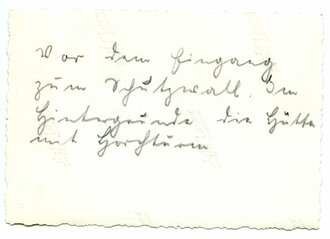 Vor dem Eingang
zum Schutzwall. Im
Hintergrunde die Hütte
mit Horchturm